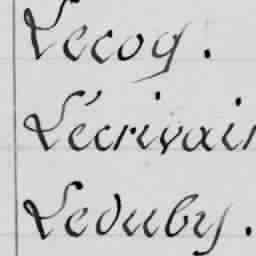 Lecoq.
Lécrivain
Leduby.